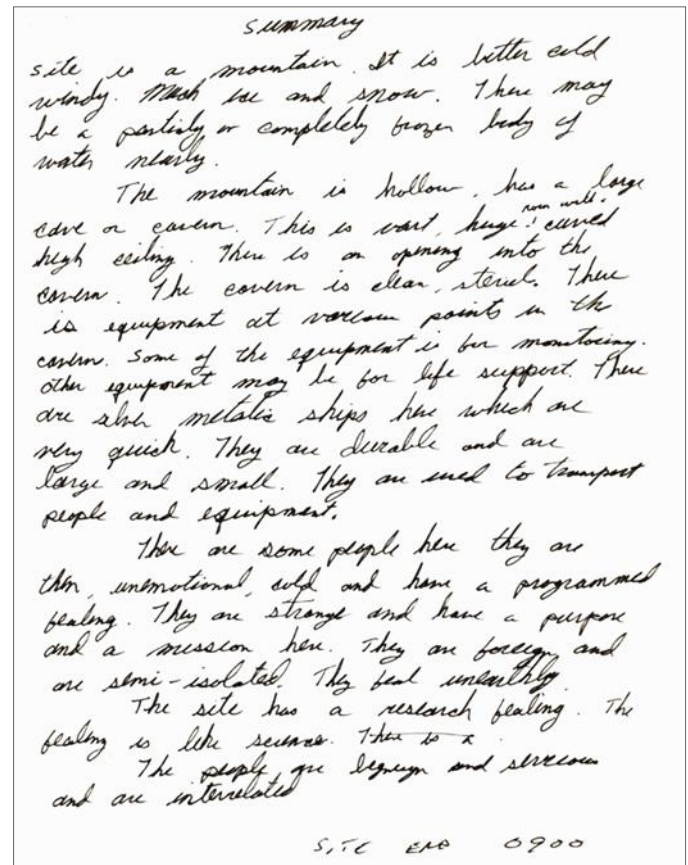 Summary
Site is a mountain. It is bitter cold
windy. Much ice and snow. There may
be a partialy or completely frozen body of
water nearly.
The mountain is hollow, has a large
cave or cavern. This is vast, huge! curved
high ceiling. There is an opening into the
cavern. The cavern is clean, steriel. There
is equipment at various points in the
cavern. Some of the equipment is for monitoring.
Other equipment may be for life support. There
are silver metalic ships here which are
very quick. They are durable and are
large and small. They are used to transport
people and equipment.
There are some people here they are
thin, unemotional, cold and have a programmed
fealing. They are strange and have a purpose
and a mission here. They are foreign and
are semi-isolated. They feal unearthly
The site has a research fealing. The
fealing is like science. There is a
The people are and
and are interrelated
SITE END 0900